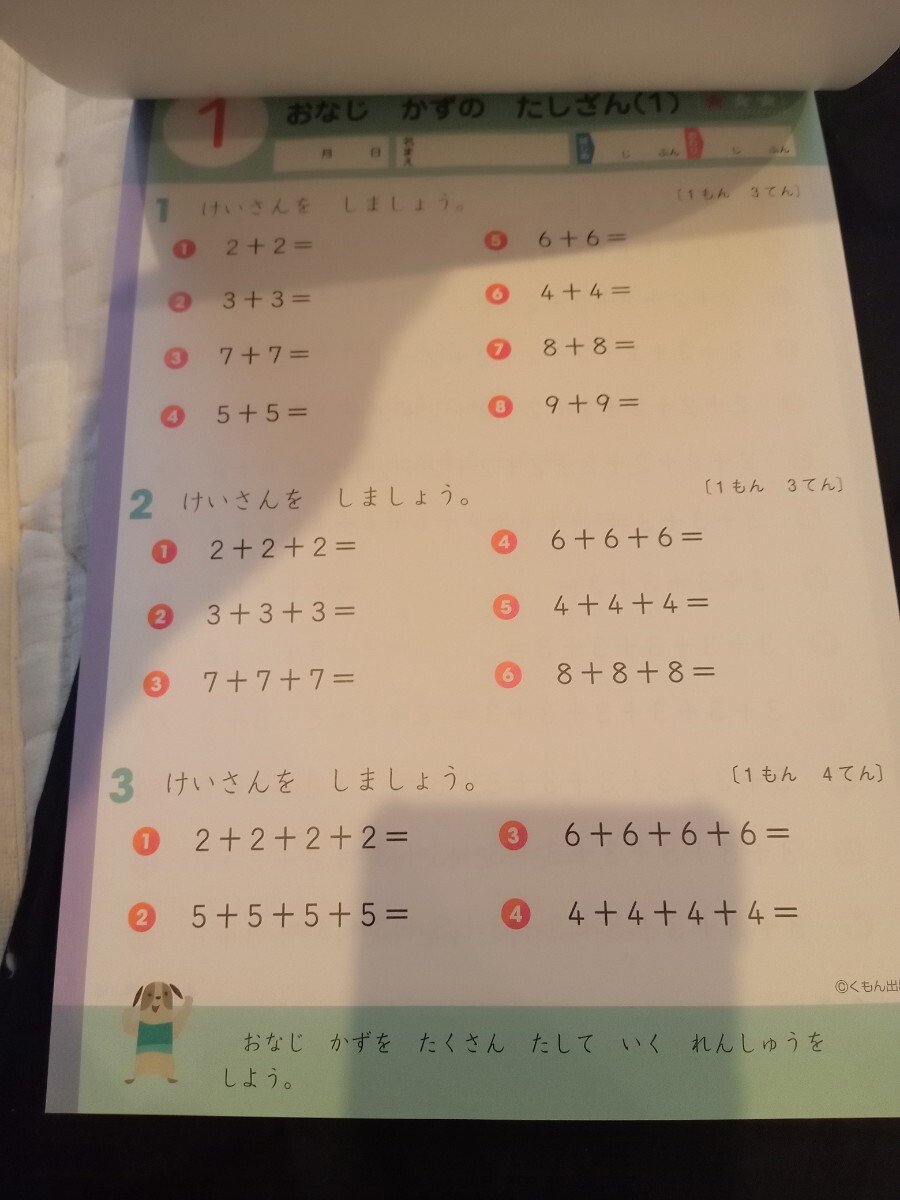 1 おなじ かずの たしざん(1)
月 日 名まえ じ ふん じ ふん
1 けいさんを しましょう。 〔1もん 3てん〕
1 2+2= 5 6+6=
2 3+3= 6 4+4=
3 7+7= 7 8+8=
4 5+5= 8 9+9=
2 けいさんを しましょう。 〔1もん 3てん〕
1 2+2+2= 4 6+6+6=
2 3+3+3= 5 4+4+4=
3 7+7+7= 6 8+8+8=
3 けいさんを しましょう。 〔1もん 4てん〕
1 2+2+2+2= 3 6+6+6+6=
2 5+5+5+5= 4 4+4+4+4=
©くもん出
おなじ かずを たくさん たして いく れんしゅうを
しよう。